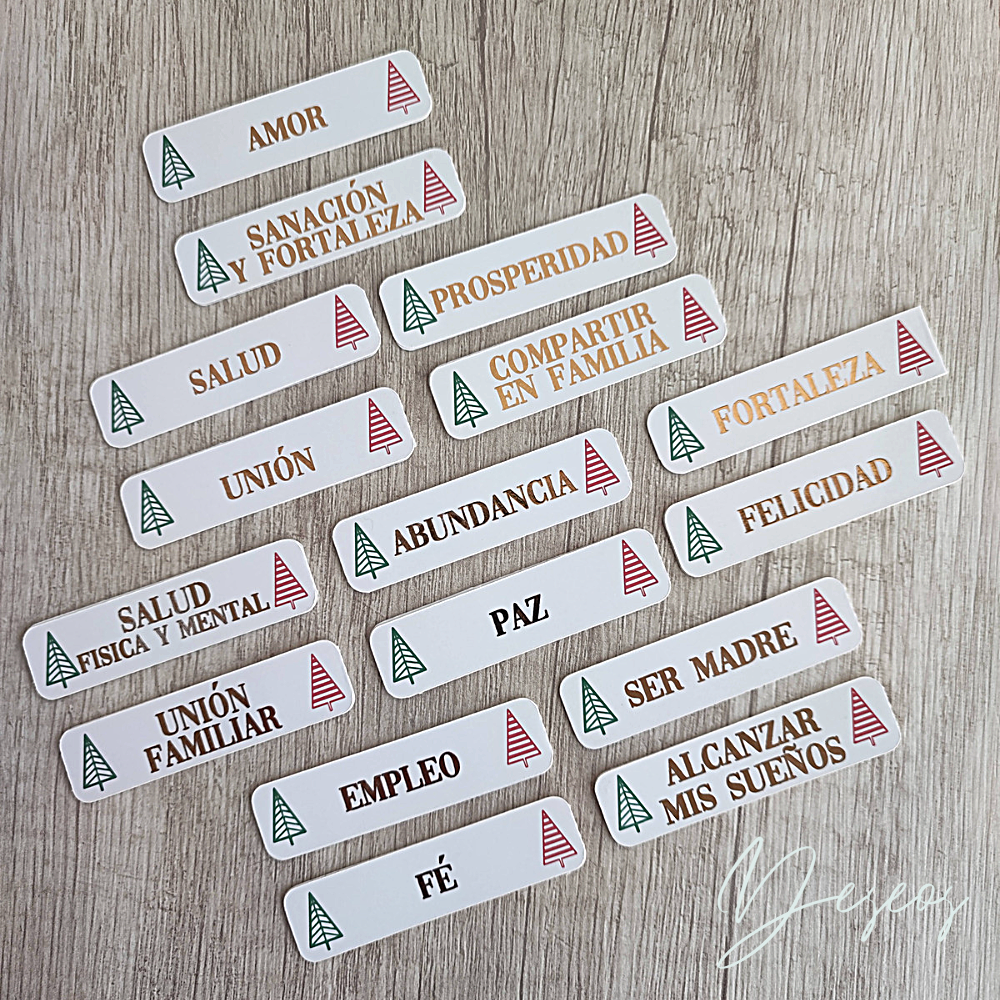 AMOR
SANACIÓN
Y FORTALEZA
PROSPERIDAD
SALUD
COMPARTIR
EN FAMILIA
FORTALEZA
UNIÓN
ABUNDANCIA
FELICIDAD
SALUD
FISICA Y MENTAL
PAZ
UNIÓN
FAMILIAR
SER MADRE
EMPLEO
ALCANZAR
MIS SUEÑOS
FÉ
Deseos